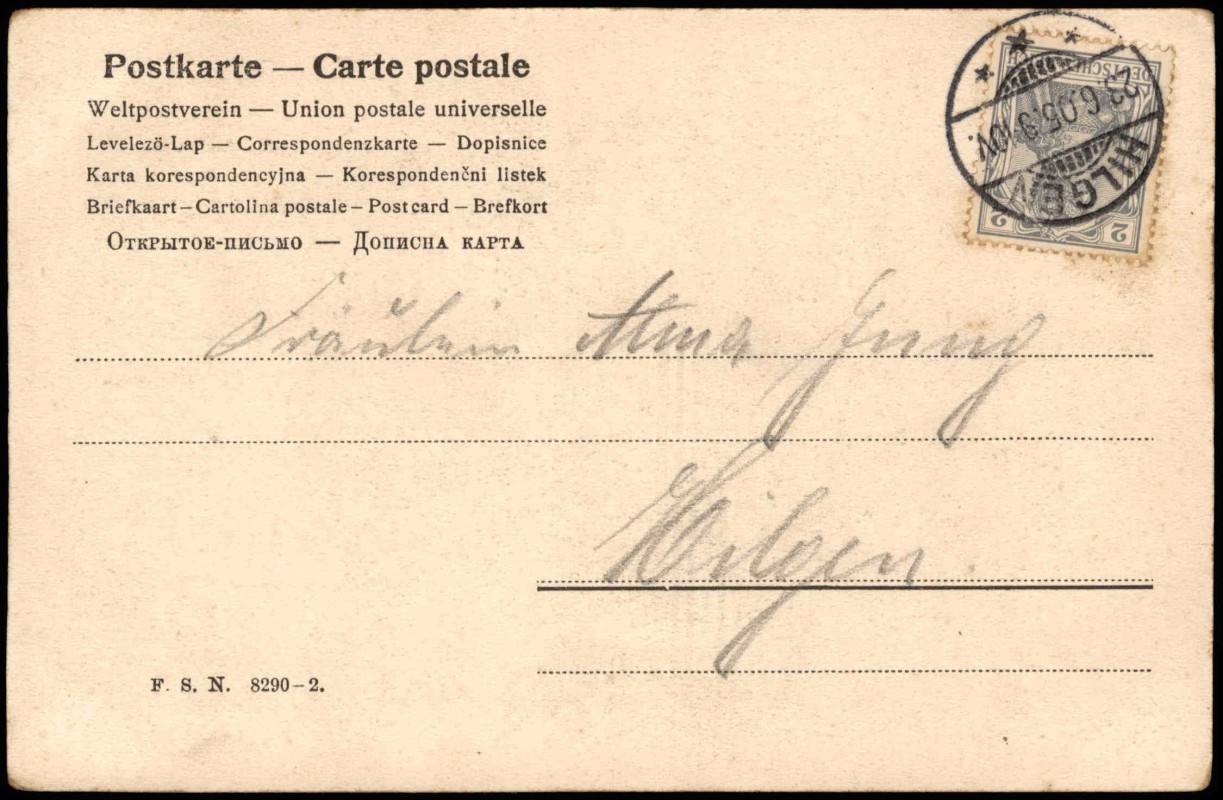 Postkarte — Carte postale
Weltpostverein — Union postale universelle
Levelezö-Lap — Correspondenzkarte — Dopisnice
Karta korespondencyjna — Korespondenčni listek
Briefkaart – Cartolina postale – Post card – Brefkort
Открытое-письмо — Дописна карта
DEUTSCHES
2 2
HILGEN
23.6.05.9-10V.
Fräulein Alma Jung
Hilgen.
F. S. N. 8290–2.